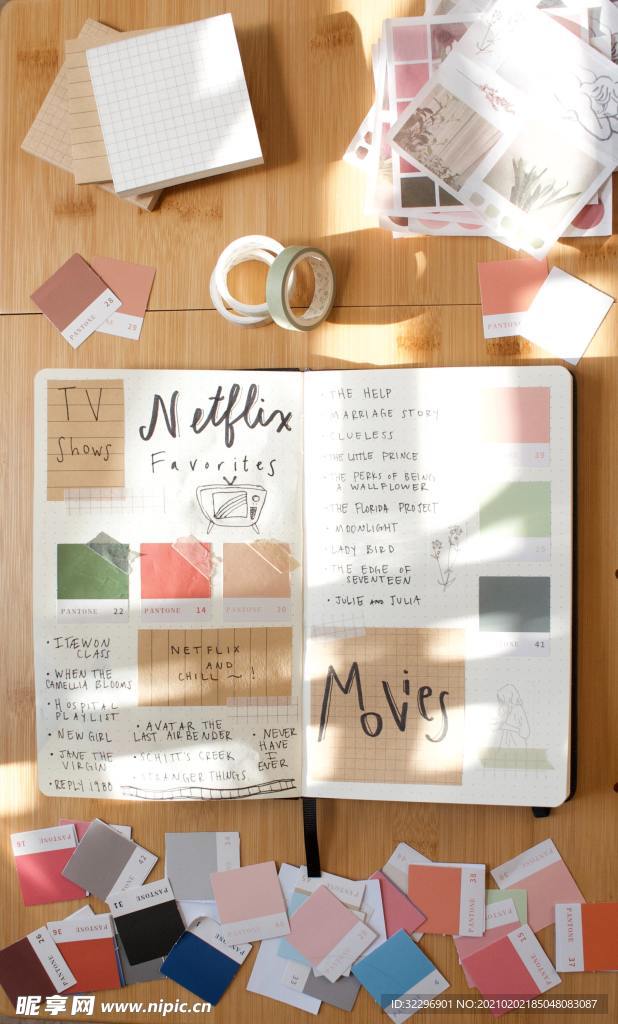 PANTONE 28
29
PANTONE
TV
Shows
Netflix
Favorites
PANTONE 22
PANTONE 14
PANTONE 20
• ITAEWON
CLASS
• WHEN THE
CAMELLIA BLOOMS
• HOSPITAL
PLAYLIST
• NEW GIRL
• JANE THE
VIRGIN
• REPLY 1988
NETFLIX
AND
CHILL ~ !
• AVATAR THE
LAST AIRBENDER
• SCHITT'S CREEK
• STRANGER THINGS
• NEVER
HAVE
I
EVER
• THE HELP
• MARRIAGE STORY
• CLUELESS
• THE LITTLE PRINCE
• THE PERKS OF BEING
A WALLFLOWER
• THE FLORIDA PROJECT
• MOONLIGHT
• LADY BIRD
• THE EDGE OF
SEVENTEEN
• JULIE AND JULIA
39
41
Movies
PANTONE 16
PANTONE 42
PANTONE 31
PANTONE 26
PANTONE 36
PANTONE 38
PANTONE 15
PANTONE 37
昵享网 www.nipic.cn
ID:32296901 NO:20210202185048083087